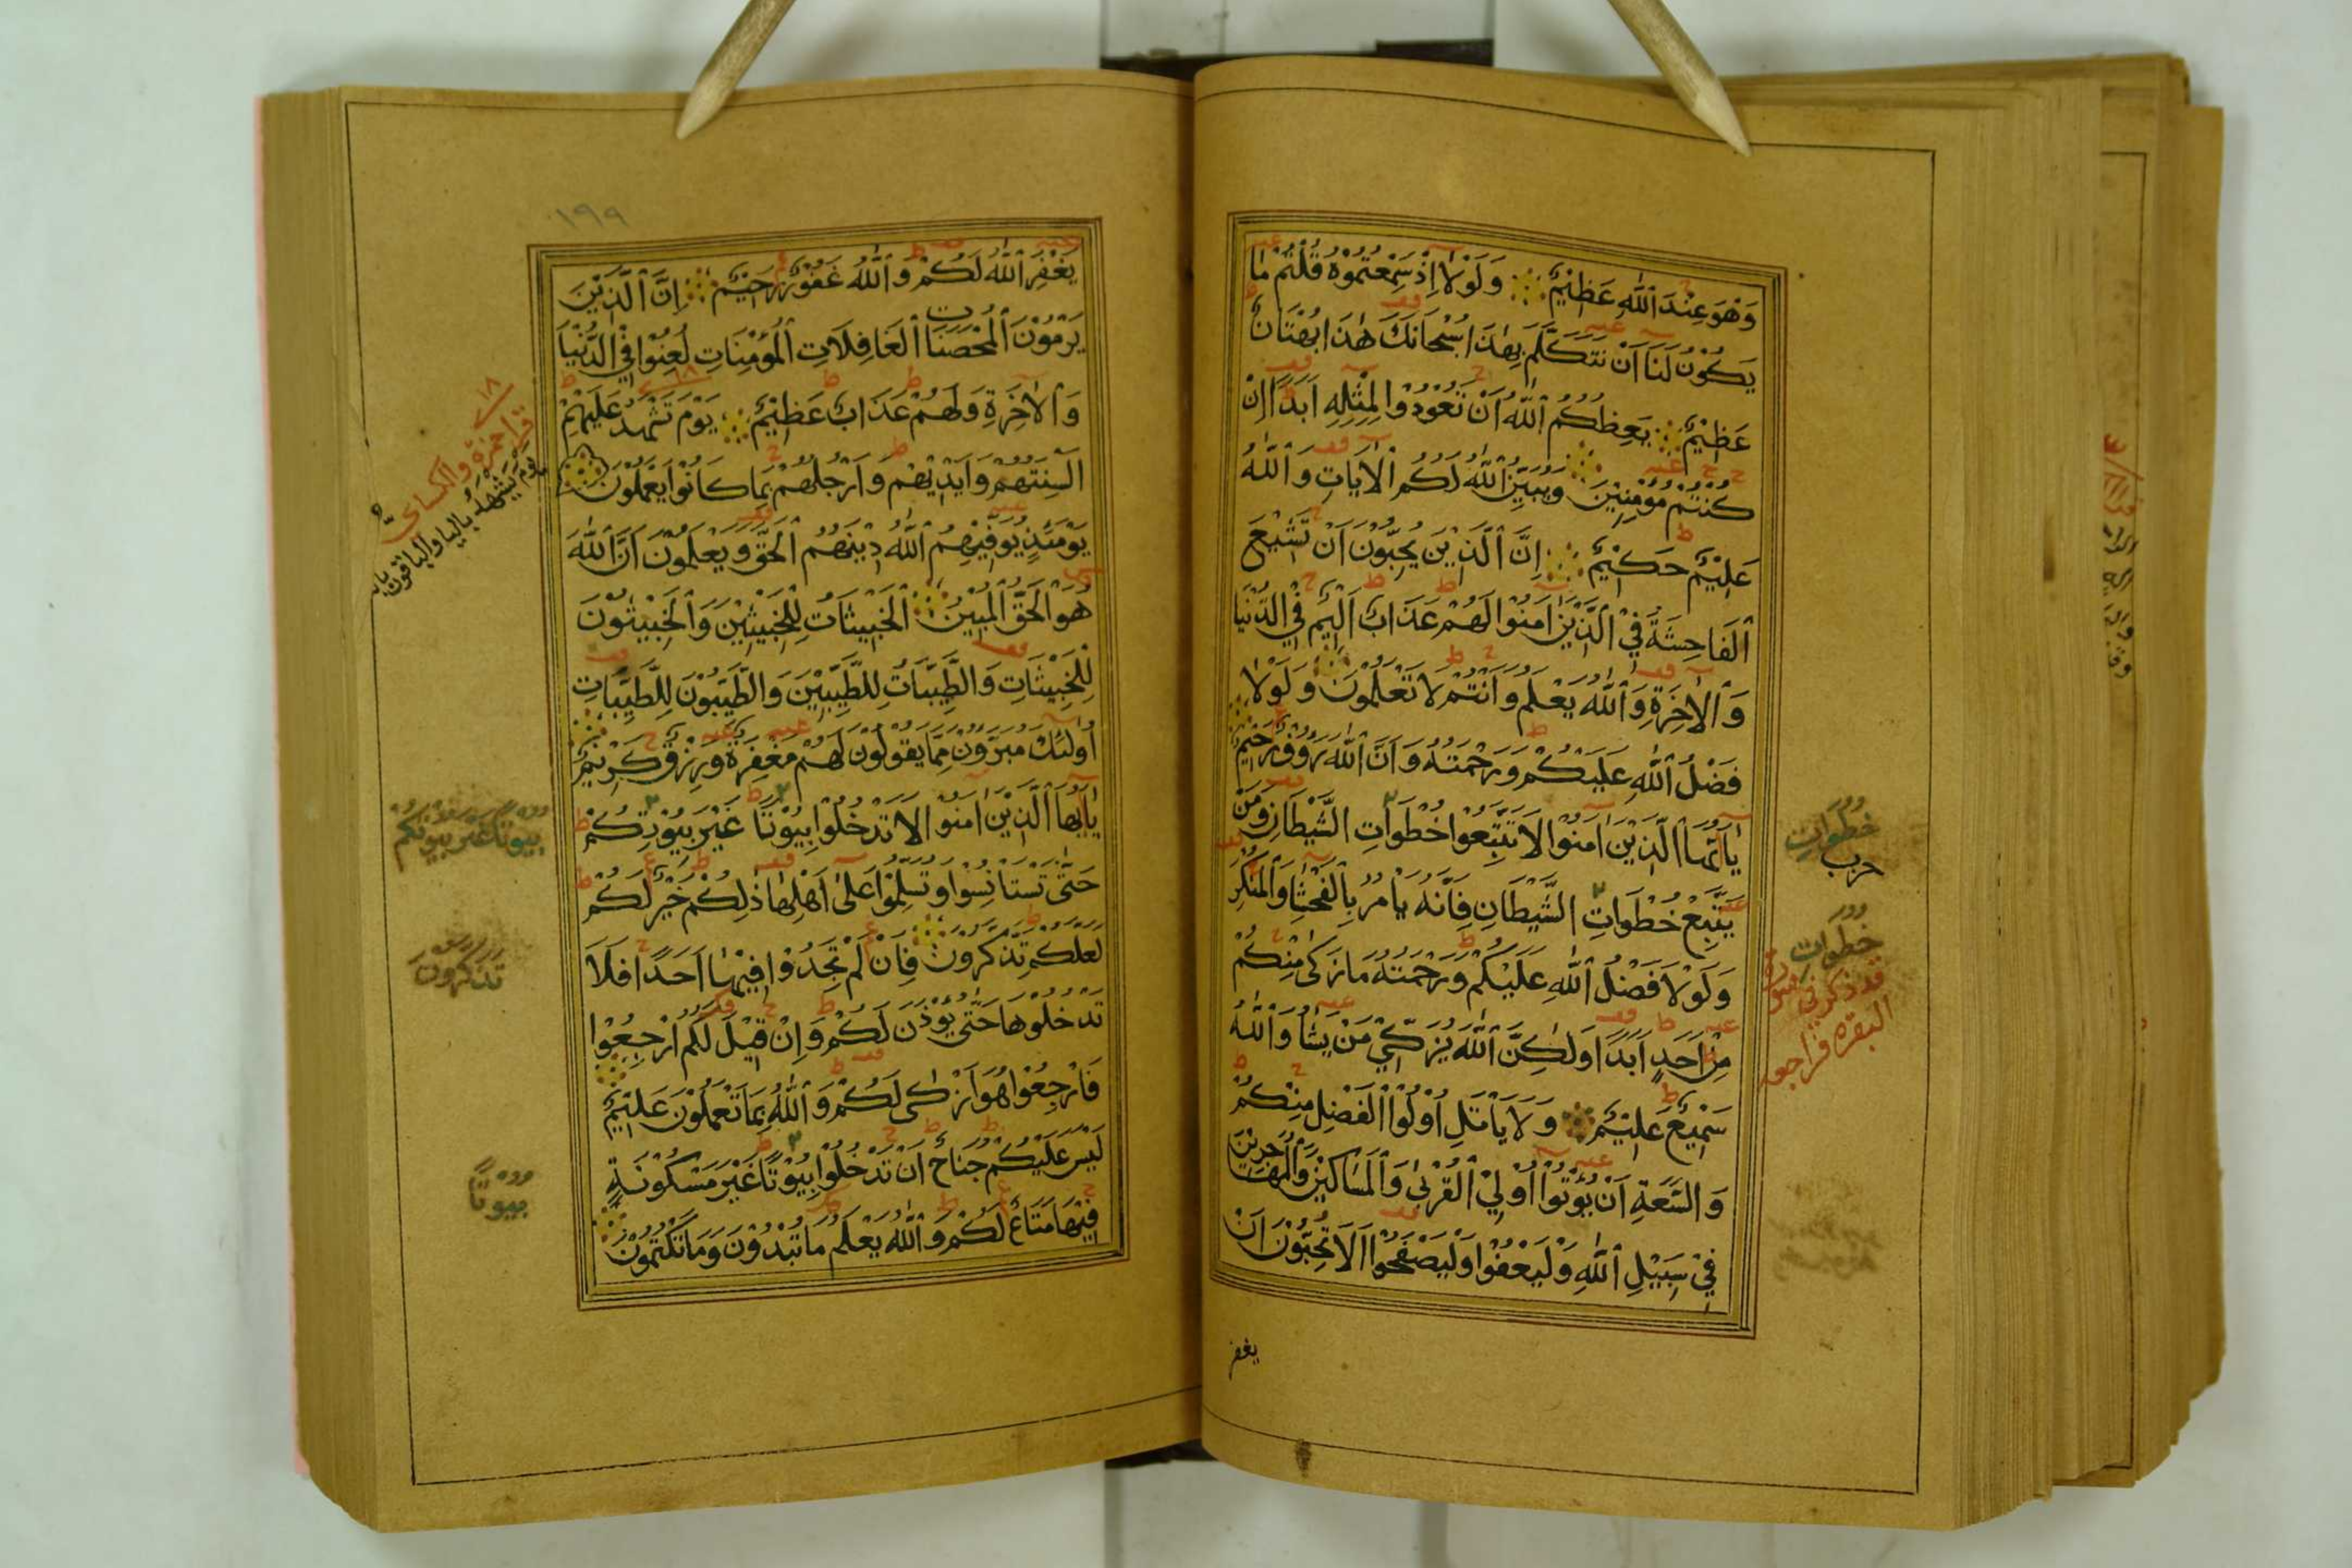 وَهُوَ عِنْدَ اللّٰهِ عَظِيْمٌ وَلَوْلَا اِذْ سَمِعْتُمُوْهُ قُلْتُمْ مَا
يَكُوْنُ لَنَا اَنْ نَتَكَلَّمَ بِهٰذَا سُبْحَانَكَ هٰذَا بُهْتَانٌ
عَظِيْمٌ يَعِظُكُمُ اللّٰهُ اَنْ تَعُوْدُوْا لِمِثْلِهِ اَبَدًا اِنْ
كُنْتُمْ مُؤْمِنِيْنَ وَيُبَيِّنُ اللّٰهُ لَكُمُ الْاٰيَاتِ وَاللّٰهُ
عَلِيْمٌ حَكِيْمٌ اِنَّ الَّذِيْنَ يُحِبُّوْنَ اَنْ تَشِيْعَ
الْفَاحِشَةُ فِي الَّذِيْنَ اٰمَنُوْا لَهُمْ عَذَابٌ اَلِيْمٌ فِي الدُّنْيَا
وَالْاٰخِرَةِ وَاللّٰهُ يَعْلَمُ وَاَنْتُمْ لَا تَعْلَمُوْنَ وَلَوْلَا
فَضْلُ اللّٰهِ عَلَيْكُمْ وَرَحْمَتُهُ وَاَنَّ اللّٰهَ رَؤُوْفٌ رَحِيْمٌ
يَا اَيُّهَا الَّذِيْنَ اٰمَنُوْا لَا تَتَّبِعُوْا خُطُوَاتِ الشَّيْطَانِ وَمَنْ
يَتَّبِعْ خُطْوَاتِ الشَّيْطَانِ فَاِنَّهُ يَاْمُرُ بِالْفَحْشَا وَالْمُنْكَرِ
وَلَوْلَا فَضْلُ اللّٰهِ عَلَيْكُمْ وَرَحْمَتُهُ مَا زَكٰى مِنْكُمْ
مِنْ اَحَدٍ اَبَدًا وَلٰكِنَّ اللّٰهَ يُزَكِّيْ مَنْ يَشَا وَاللّٰهُ
سَمِيْعٌ عَلِيْمٌ وَلَا يَاْتَلِ اُوْلُوْا الْفَضْلِ مِنْكُمْ
وَالسَّعَةِ اَنْ يُؤْتُوْا اُوْلِيْ الْقُرْبٰى وَالْمَسَاكِيْنَ وَالْمُهَاجِرِيْنَ
فِيْ سَبِيْلِ اللّٰهِ وَلْيَعْفُوْا وَلْيَصْفَحُوْا اَلَا تُحِبُّوْنَ اَنْ
يغفر
خُطُوَاتِ
حرب
خطوات
قد ذكر في سورة
البقرة فراجعه
١٩٩
يَغْفِرَ اللّٰهُ لَكُمْ وَاللّٰهُ غَفُوْرٌ رَحِيْمٌ اِنَّ الَّذِيْنَ
يَرْمُوْنَ الْمُحْصَنَاتِ الْغَافِلَاتِ الْمُؤْمِنَاتِ لُعِنُوْا فِي الدُّنْيَا
وَالْاٰخِرَةِ وَلَهُمْ عَذَابٌ عَظِيْمٌ يَوْمَ تَشْهَدُ عَلَيْهِمْ
اَلْسِنَتُهُمْ وَاَيْدِيْهِمْ وَاَرْجُلُهُمْ بِمَا كَانُوْا يَعْمَلُوْنَ
يَوْمَئِذٍ يُوَفِّيْهِمُ اللّٰهُ دِيْنَهُمُ الْحَقَّ وَيَعْلَمُوْنَ اَنَّ اللّٰهَ
هُوَ الْحَقُّ الْمُبِيْنُ الْخَبِيْثَاتُ لِلْخَبِيْثِيْنَ وَالْخَبِيْثُوْنَ
لِلْخَبِيْثَاتِ وَالطَّيِّبَاتُ لِلطَّيِّبِيْنَ وَالطَّيِّبُوْنَ لِلطَّيِّبَاتِ
اُولٰئِكَ مُبَرَّؤُنَ مِمَّا يَقُوْلُوْنَ لَهُمْ مَغْفِرَةٌ وَرِزْقٌ كَرِيْمٌ
يَا اَيُّهَا الَّذِيْنَ اٰمَنُوْا لَا تَدْخُلُوْا بِيُوْتًا غَيْرَ بِيُوْتِكُمْ
حَتّٰى تَسْتَانِسُوْا وَتُسَلِّمُوْا عَلٰى اَهْلِهَا ذٰلِكُمْ خَيْرٌ لَكُمْ
لَعَلَّكُمْ تَذَّكَّرُوْنَ فَاِنْ لَمْ تَجِدُوْا فِيْهَا اَحَدًا فَلَا
تَدْخُلُوْهَا حَتّٰى يُؤْذَنَ لَكُمْ وَاِنْ قِيْلَ لَكُمُ ارْجِعُوْا
فَارْجِعُوْا هُوَ اَزْكٰى لَكُمْ وَاللّٰهُ بِمَا تَعْمَلُوْنَ عَلِيْمٌ
لَيْسَ عَلَيْكُمْ جُنَاحٌ اَنْ تَدْخُلُوْا بِيُوْتًا غَيْرَ مَسْكُوْنَةٍ
فِيْهَا مَتَاعٌ لَكُمْ وَاللّٰهُ يَعْلَمُ مَا تُبْدُوْنَ وَمَا تَكْتُمُوْنَ
١٨
قرا حمزة والكسائي
يوم يشهد باليا والباقون بالتا
بُيُوْتًا غَيْرَ بُيُوْتِكُمْ
تَذَكَّرُونَ
بُيُوتًا